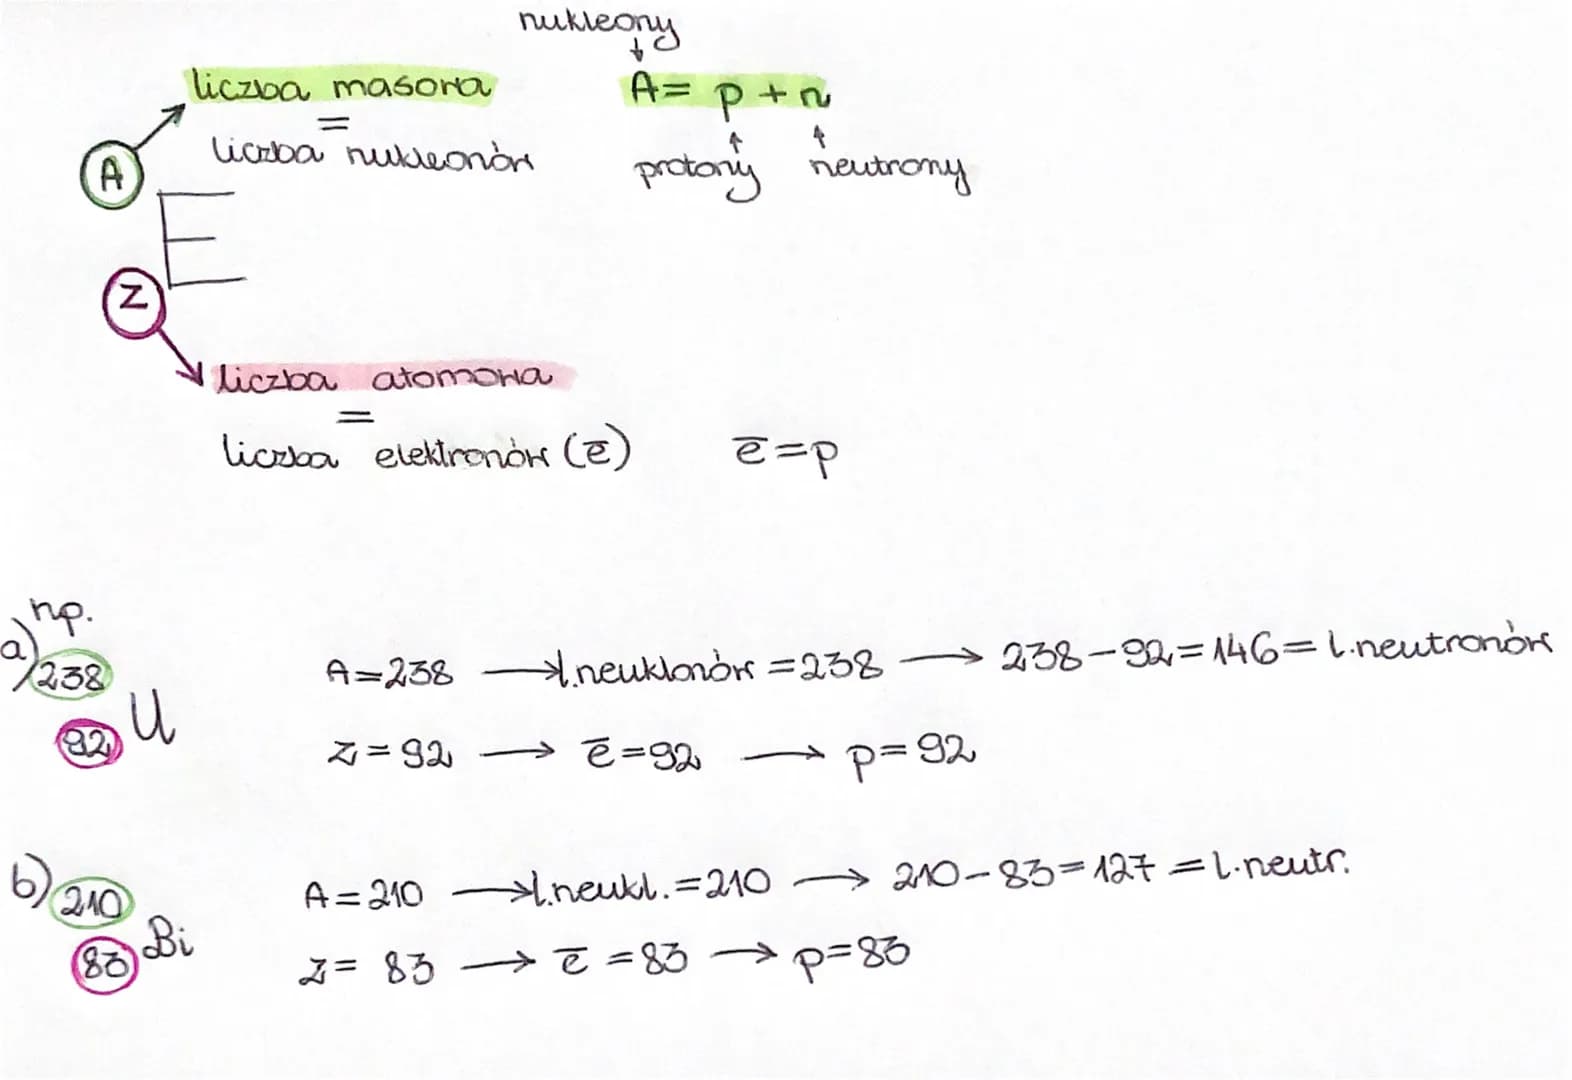 nukleony
↓
liczba masowa A = p + n
= ↑ ↑
liczba nukleonów protony neutrony
A
E
Z
liczba atomowa
=
liczba elektronów (e̅) e̅ = p
np.
a) 238 A = 238 → l.neuklonów = 238 → 238 - 92 = 146 = l.neutronów
92 U Z = 92 → e̅ = 92 → p = 92
b) 210 A = 210 → l.neukl. = 210 → 210 - 83 = 127 = l.neutr.
83 Bi Z = 83 → e̅ = 83 → p = 83